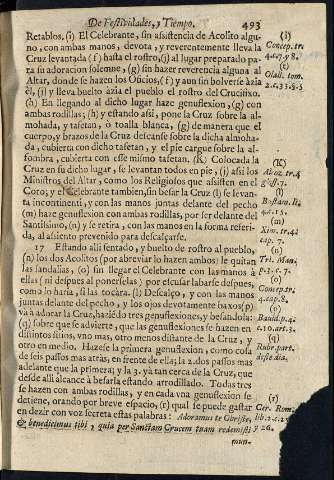 De Festividades, y Tiempo. 493
Retablos, (i) El Celebrante, sin asistencia de Acolito algu-
no, con ambas manos, devota, y reverentemente lleva la
Cruz levantada (f) hasta el rostro, (j) al lugar preparado pa-
ra su adoracion solemne, (g) sin hazer reverencia alguna al
Altar, donde se hazen los Oficios, (f) y aun sin bolverse àzia
èl, (i) y lleva buelto àzia el pueblo el rostro del Crucifixo.
(h) En llegando al dicho lugar haze genuflexion, (g) con
ambas rodillas; (h) y estando assi, pone la Cruz sobre la al-
mohada, y tafetan, ò toalla blanca, (g) de manera que el
cuerpo, y brazos de la Cruz descanse sobre la dicha almoha-
da, cubierta con dicho tafetan, y el pie cargue sobre la al-
fombra, cubierta con esse mismo tafetan. (K) Colocada la
Cruz en su dicho lugar, se levantan todos en pie, (j) assi los
Ministros del Altar, como los Religiosos que assisten en el
Coro; y el Celebrante tambien, sin besar la Cruz (l) se levan-
ta incontinenti, y con las manos juntas delante del pecho
(m) haze genuflexion con ambas rodillas, por ser delante del
Santissimo, (n) y se retira, con las manos en la forma referi-
da, al assiento prevenido para descalçarse.
17 Estando alli sentado, y buelto de rostro al pueblo,
(n) los dos Acolitos (por abreviar lo hazen ambos) le quitan
las sandalias, (o) sin llegar el Celebrante con las manos à
ellas (ni despues al ponerselas) por escusar labarse despues,
como lo haria, si las tocàra. (j) Descalço, y con las manos
juntas delante del pecho, y los ojos devotamente baxos (p)
và à adorar la Cruz, haziédo tres genuflexiones, y besandola:
(q) sobre que se advierte, que las genuflexiones se hazen en
distintos sitios, vno mas, otro menos distante de la Cruz, y
otro en medio. Hazese la primera genuflexion, como cosa
de seis passos mas atràs, en frente de ella; la 2. dos passos mas
adelante que la primera; y la 3. yà tan cerca de la Cruz, que
desde alli alcance à besarla estando arrodillado. Todas tres
se hazen con ambas rodillas, y en cada vna genuflexion se
detiene, orando por breve espacio, (r) qual se puede gastar
en dezir con voz secreta estas palabras: Adoramus te Christe,
& benedicimus tibi, quia per Sanctam Crucem tuam redemisti
mun-
(i)
Concep. tr.
4. c. 7. y 8.
(e)
Olall. tom.
(K)
(l)
Bustam. li.
4. c. 15.
(m)
cap. 7.
(n)
Tri. Man.
p. 3. c. 7.
(o)
Concep. tr.
4. cap. 8.
(p)
Bauld. p. 4.
c. 10. art. 3.
(q)
Rubr. part.
dist. dia.
(r)
Cer. Rom.
lib. 2. c. 25.
y 26.